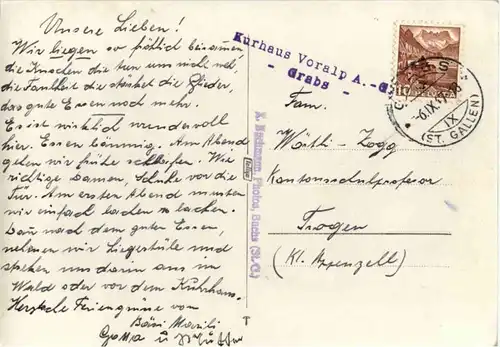 Unsere Lieben!
Wir liegen so fröhlich beisammen,
die Knochen die tun uns nicht weh,
die Faulheit die stärket die Glieder,
das gute Essen noch mehr.
Es ist wirklich wundervoll
hier. Essen bäumig. Am Abend
gehen wir frühe schlafen. Wie
richtige Damen, Schuhe vor die
Tür. Am ersten Abend mussten
wir einfach lachen u. lachen.
Dann nach dem guten Essen,
nehmen wir Liegerstühle und
strecken uns darin aus im
Wald oder vor dem Kurhaus.
Herzliche Feriengrüsse von
Bäsi Marili
Gotta u.
Kurhaus Voralp A.-G.
- Grabs -
GRABS
-6.IX.
IX
(ST. GALLEN)
10
Fam.
Wörth - Zogg
Kantonsschulprofessor
Trogen
(Kt. Appenzell)
A. Bachmann, Photos, Buchs (St.G.)
T